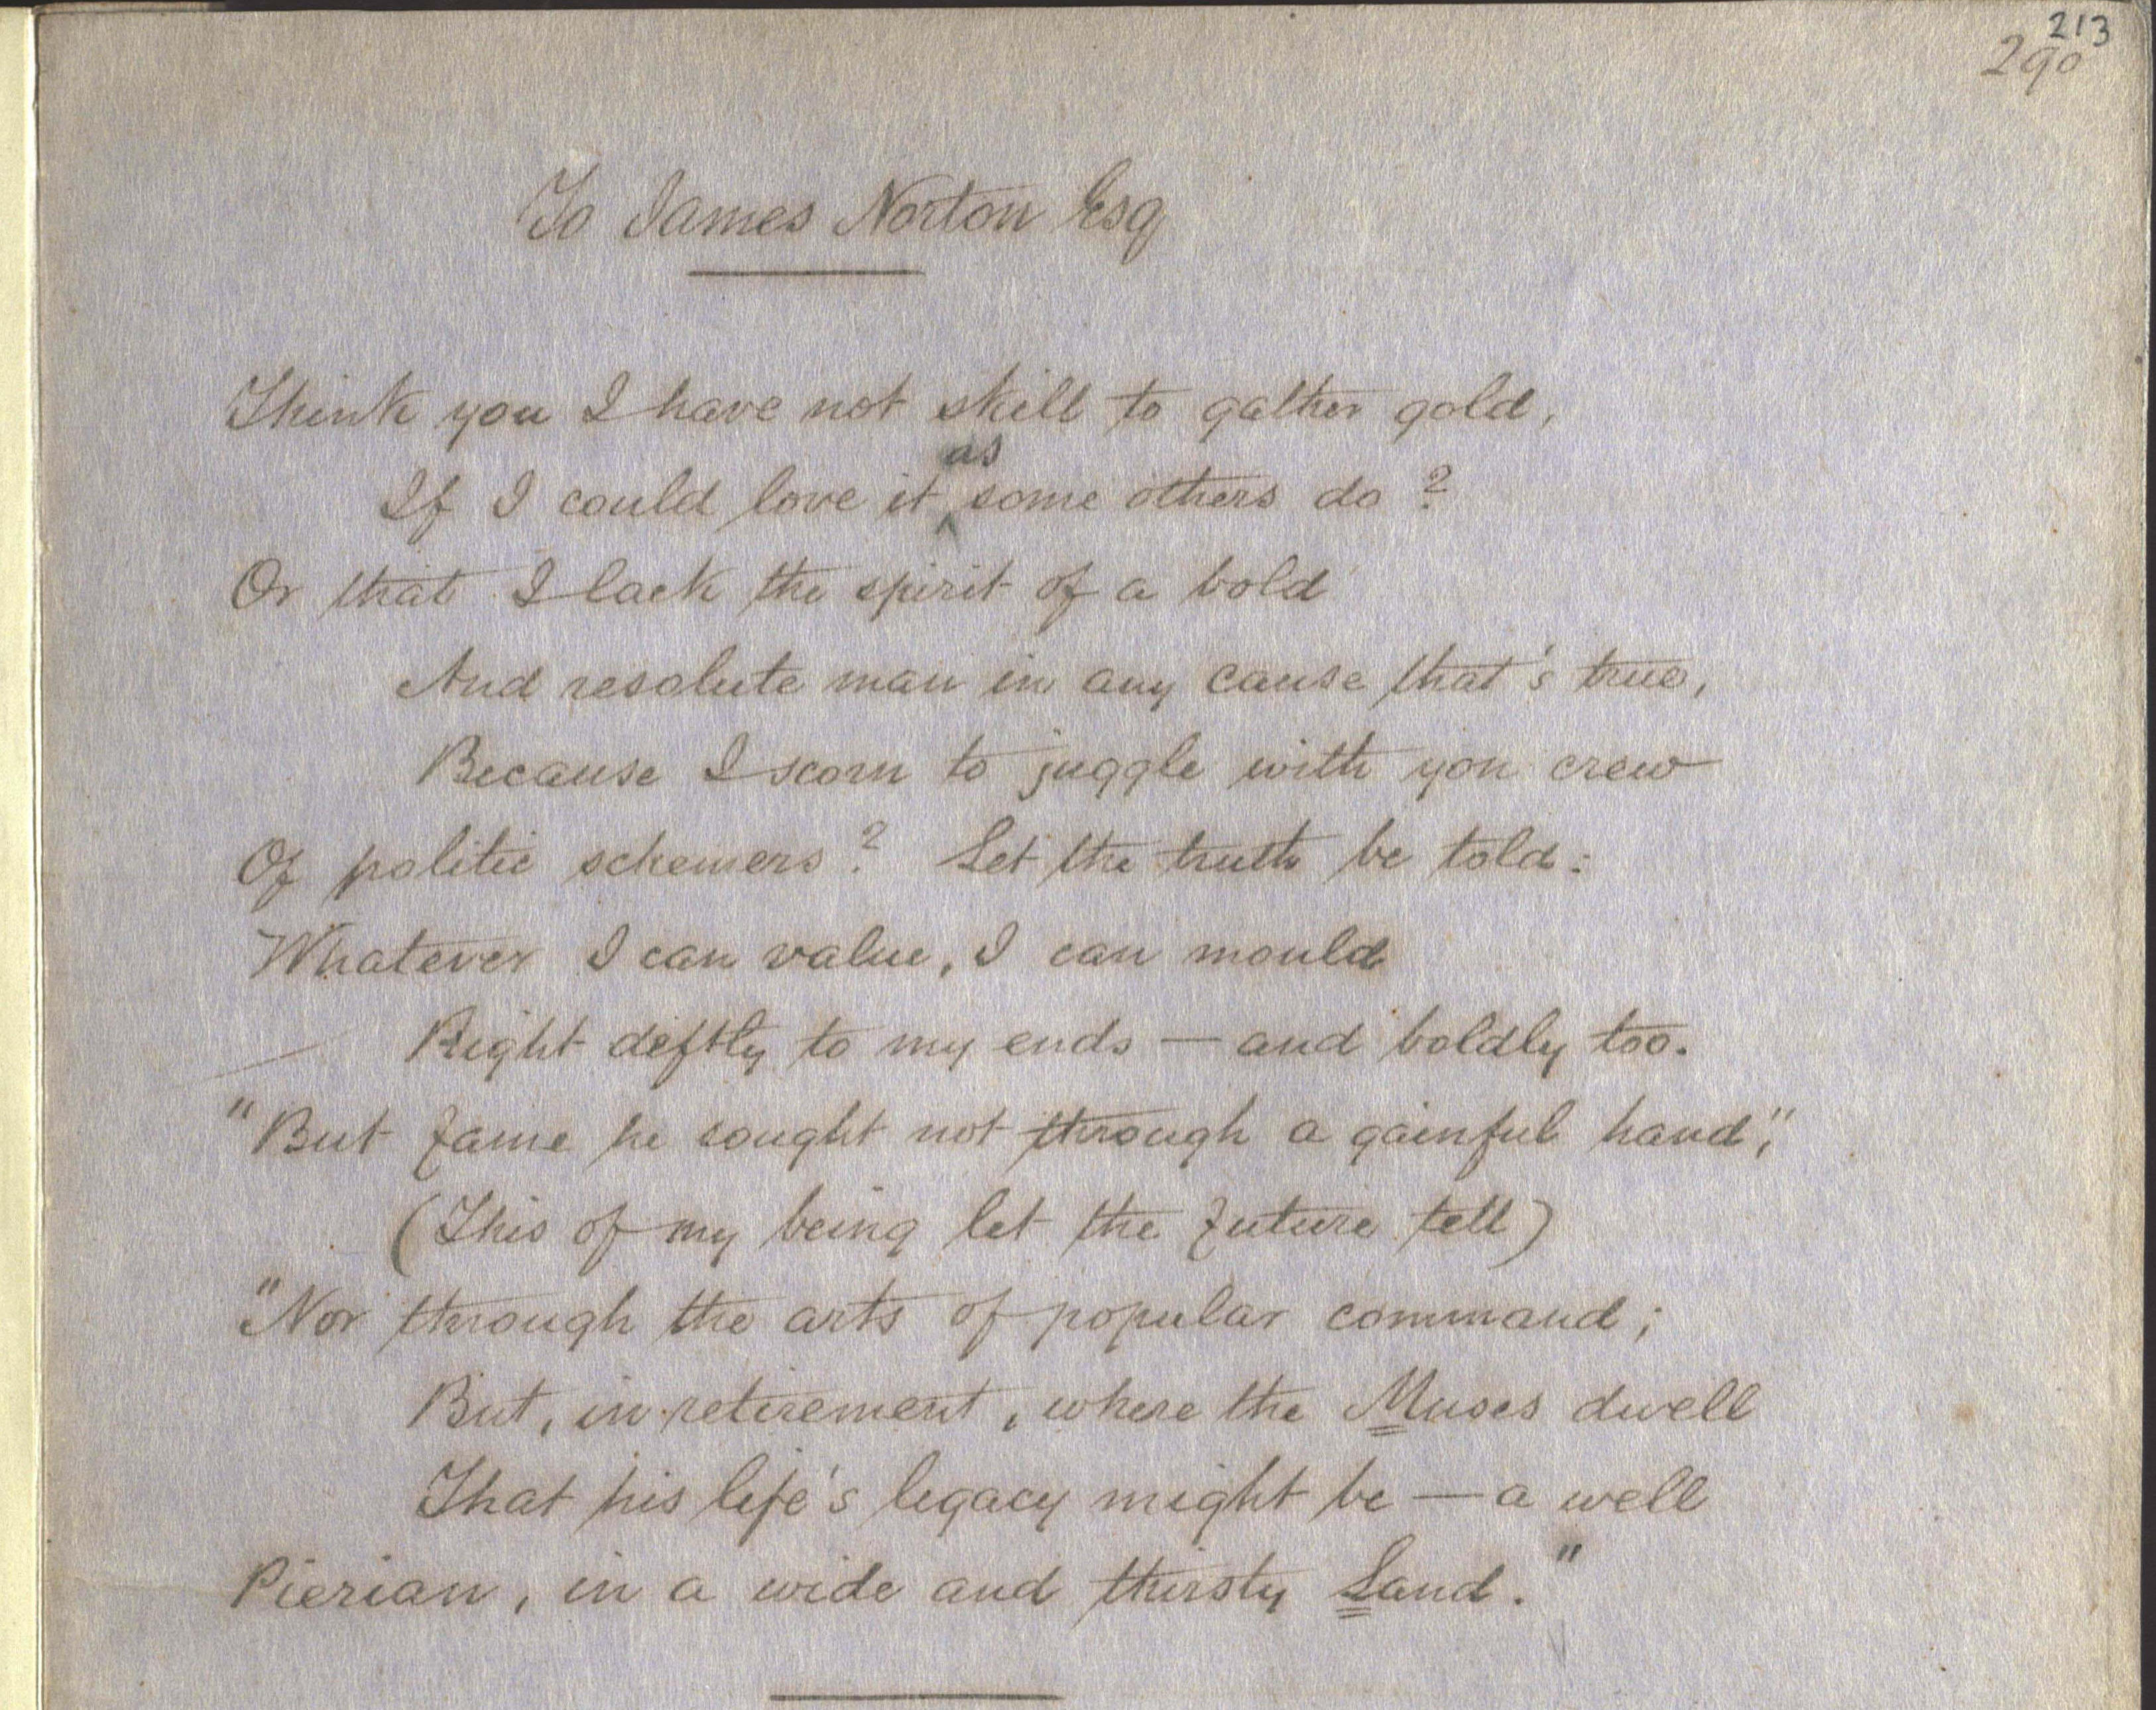 213
290
To James Norton Esq
Think you I have not skill to gather gold,
as
If I could love it some others do?
Or that I lack the spirit of a bold
And resolute man in any cause that's true,
Because I scorn to juggle with yon crew
Of politic schemers? Let the truth be told:
Whatever I can value, I can mould
Right deftly to my ends — and boldly too.
"But fame he sought not through a gainful hand",
(This of my being let the future tell)
"Nor through the arts of popular command;
But, in retirement, where the Muses dwell
That his life's legacy might be — a well
Pierian, in a wide and thirsty Land."